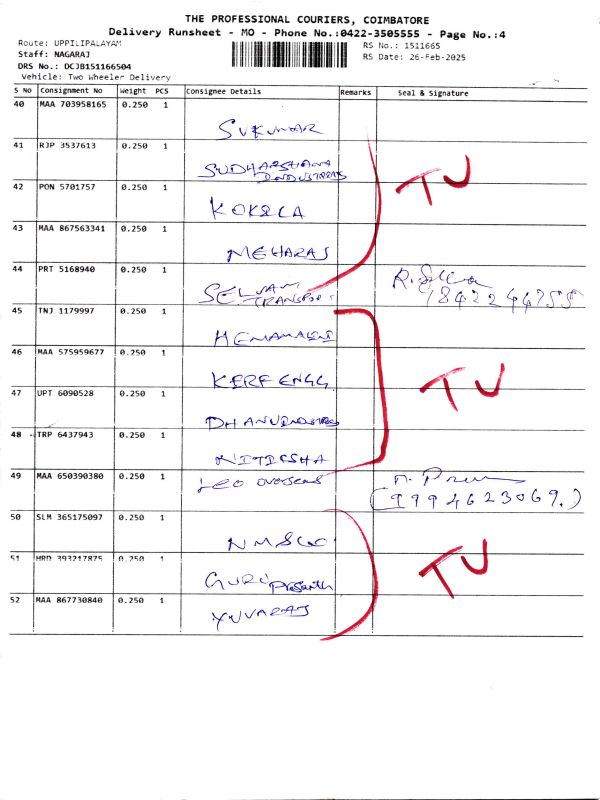 THE PROFESSIONAL COURIERS, COIMBATORE
Delivery Runsheet - MO - Phone No.:0422-3505555 - Page No.:4
Route: UPPILIPALAYAM
RS No.: 1511665
Staff: NAGARAJ
RS Date: 26-Feb-2025
DRS No.: DCJB151166504
Vehicle: Two Wheeler Delivery
S No Consignment No Weight PCS Consignee Details Remarks Seal & Signature
40 MAA 703958165 0.250 1
SUKUMAR
41 RJP 3537613 0.250 1
SUDHARSHANA
INDUSTRIES
TU
42 PON 5701757 0.250 1
KOKILA
43 MAA 867563341 0.250 1
MEGHARAJ
44 PRT 5168940 0.250 1
SELVAM
TRANSPORT
9842244755
45 TNJ 1179997 0.250 1
HEMAMALINI
46 MAA 575959677 0.250 1
KERF ENGG
TU
47 UPT 6090528 0.250 1
DHANU INDUSTRIES
48 - TRP 6437943 0.250 1
NITISSHA
49 MAA 650390380 0.250 1
LEO overseas
(9994623069.)
50 SLM 365175097 0.250 1
TU
51 HRD 393217875 0.250 1
GURU Prasanth
52 MAA 867730840 0.250 1
YUVARAJ